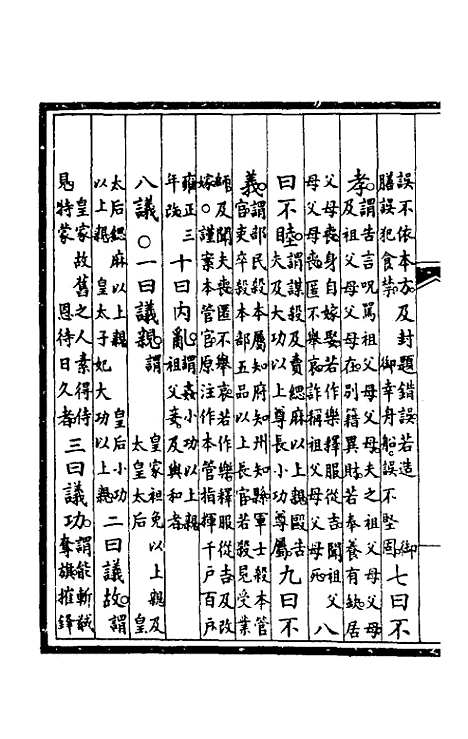 誤不依本方及封題錯誤若造 御
膳誤犯食禁 御幸舟船誤不堅固
七曰不
孝
謂告言呪罵祖父母父母夫之祖父母父母
及祖父母父母在別籍異財若奉養有缺居
父母喪身自嫁娶若作樂釋服從吉聞祖父
母父母喪匿不舉哀詐稱祖父母父母死
八
曰不睦
謂謀殺及賣緦麻以上親毆告
夫及大功以上尊長小功尊屬
九曰不
義
謂部民殺本屬知府知州知縣軍士殺本管
官吏卒殺本部五品以上長官若殺見受業
師及聞夫喪匿不舉哀若作樂釋服從吉及改
嫁○謹案本管官原注作本管指揮千戶百戶
雍正三
年改
十曰內亂
謂姦小功以上親
祖父妾及與和者
八議○一曰議親
謂 皇家袒免以上親及
太皇太后 皇
太后緦麻以上親 皇后小功
以上親 皇太子妃大功以上親
二曰議故
謂
皇家故舊之人素得侍
見特蒙 恩待日久者
三曰議功
謂能斬敵
奪旗摧鋒